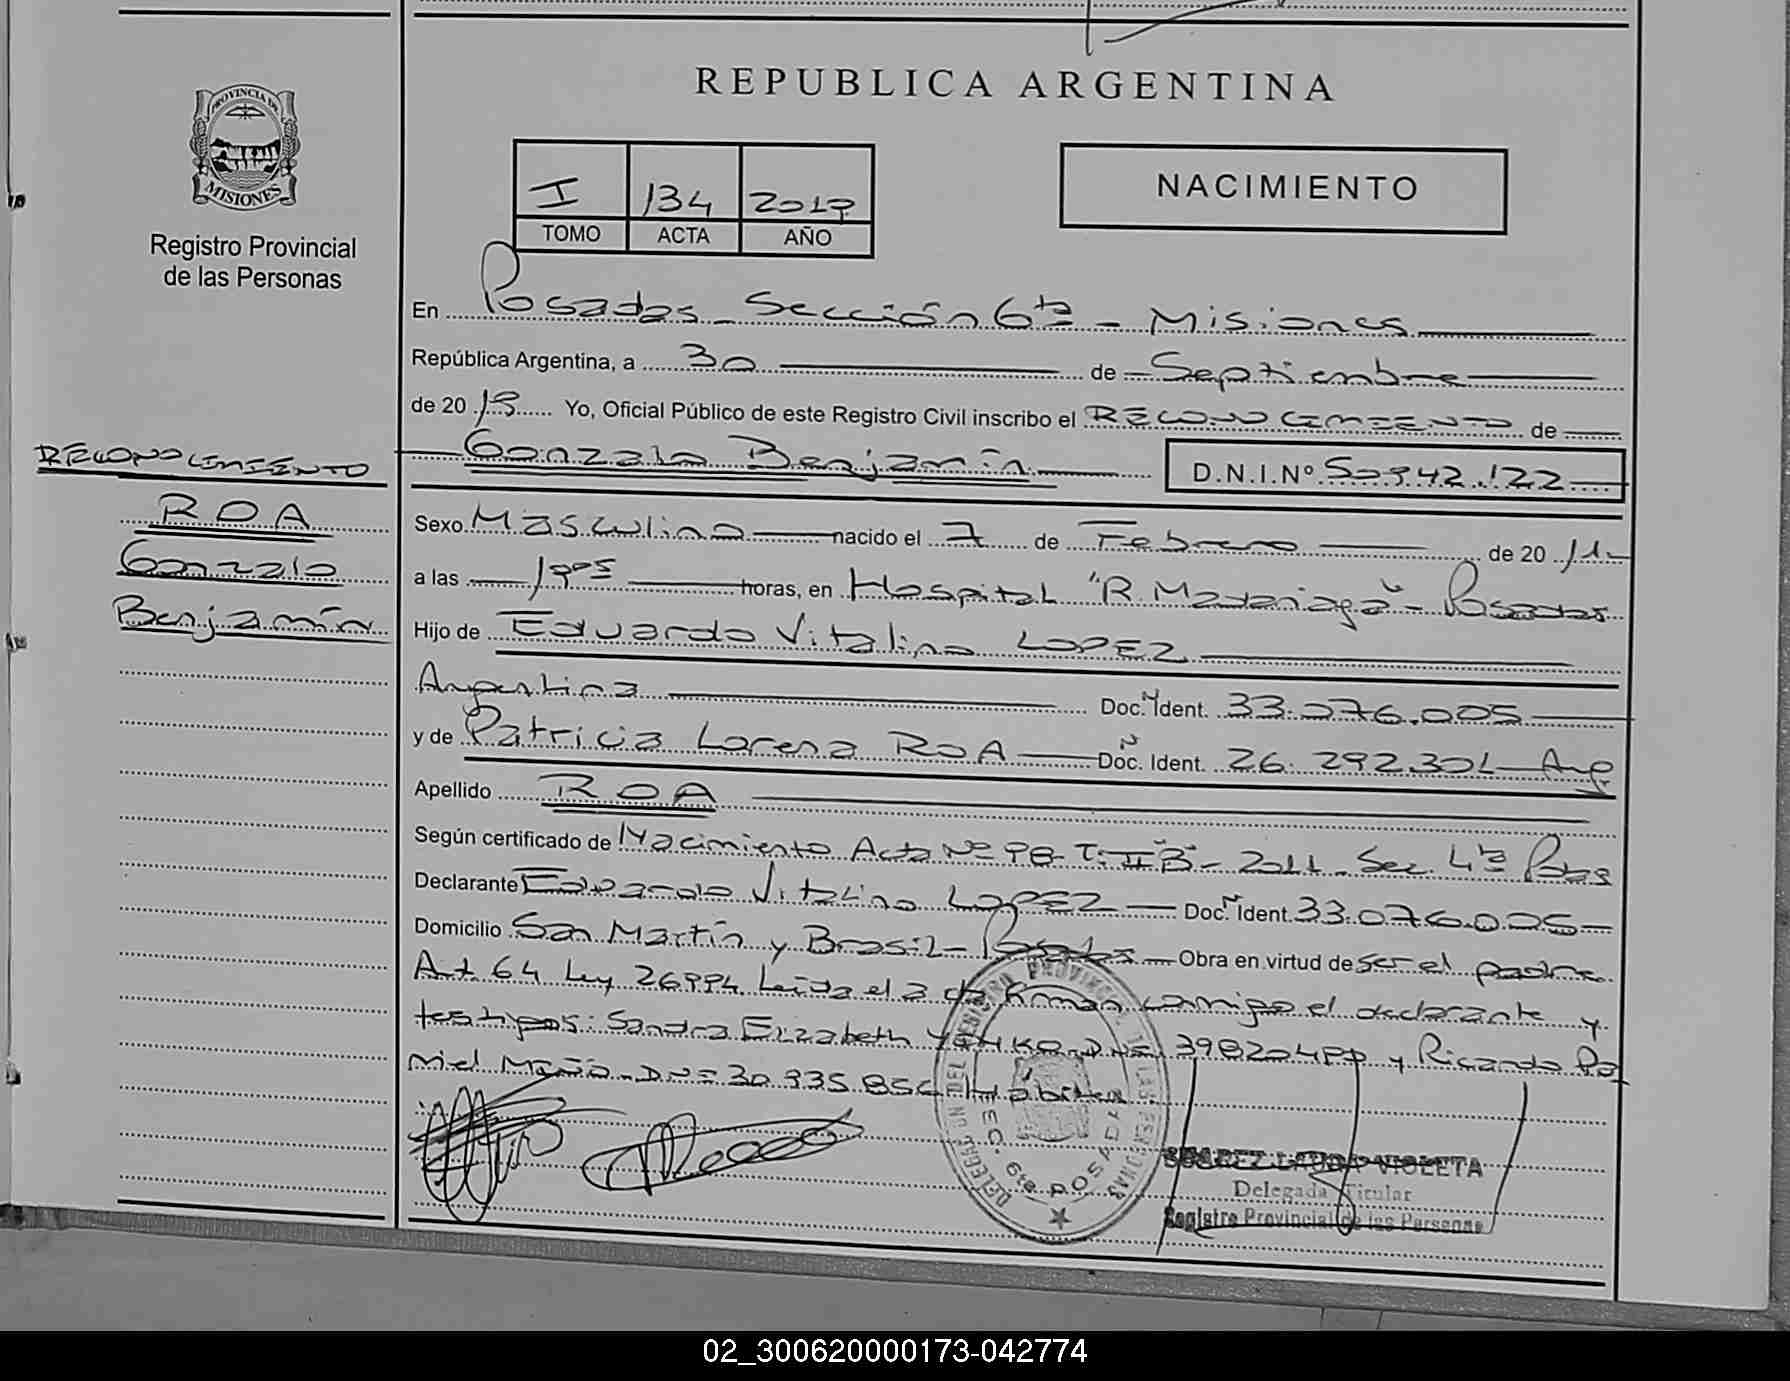 REPUBLICA ARGENTINA
PROVINCIA DE
MISIONES
Registro Provincial
de las Personas
I 134 2019
TOMO ACTA AÑO
NACIMIENTO
En Posadas - Sección 6ta - Misiones
República Argentina, a 30 de Septiembre
de 20 19 Yo, Oficial Público de este Registro Civil inscribo el RECONOCIMIENTO de
Gonzalo Benjamín D.N.I.Nº 50.942.122
RECONOCIMIENTO
ROA
Gonzalo
Benjamín
Sexo Masculino nacido el 7 de Febrero de 20 11
a las 1905 horas, en Hospital "R. Madariaga" - Posadas
Hijo de Eduardo Vitalino LOPEZ
Argentina Doc. N Ident. 33.076.005
y de Patricia Lorena ROA Doc. N Ident. 26.292.301 Arg
Apellido ROA
Según certificado de Nacimiento Acta Nº 98 T. II "B" - 2011 - Sec. 4ta Pdas
Declarante Eduardo Vitalino LOPEZ Doc. N Ident. 33.076.005
Domicilio San Martín y Brasil - Posadas Obra en virtud de ser el padre
Art 64 Ley 26994 Leida el acta firman conmigo el declarante y
testigos: Sandra Elizabeth DNI 398204 y Ricardo Da
niel DNI 30.935.856 Hábiles
DELEGACION DEL REGISTRO PROVINCIAL DE LAS PERSONAS
SEC. 6ta POSADAS
SUAREZ LAURA VIOLETA
Delegada Titular
Registro Provincial de las Personas
02_300620000173-042774